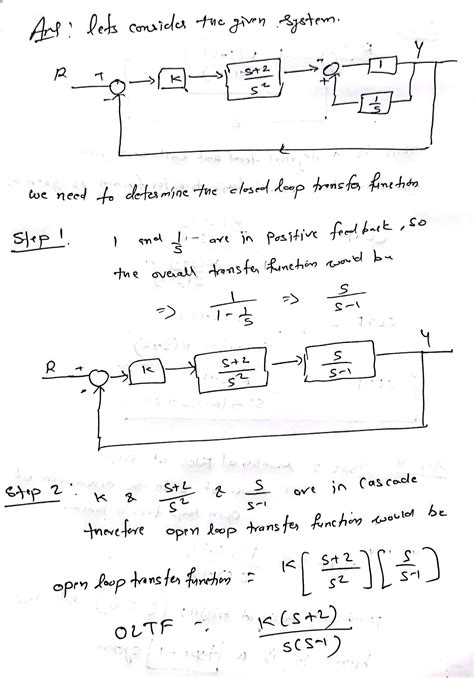 Ans: lets consider the given system.
R + - K s+2/s² - + 1 Y
1/s
we need to determine the closed loop transfer function
Step 1: 1 and 1/s - are in positive feed back, so
the overall transfer function would be
=> 1/(1 - 1/s) => s/(s-1)
R + - K s+2/s² s/(s-1) Y
Step 2: K & s+2/s² & s/(s-1) are in cascade
therefore open loop transfer function would be
open loop transfer function = K[s+2/s²][s/(s-1)]
OLTF = K(s+2)/s(s-1)